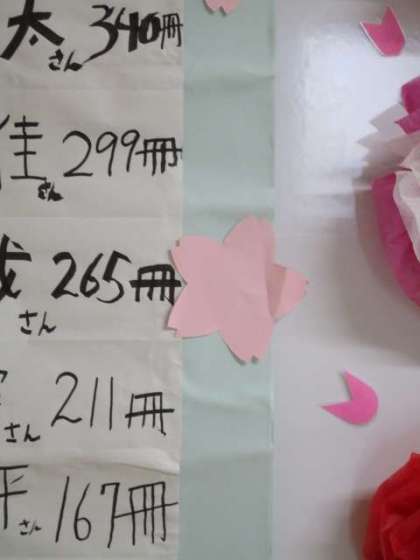 太さん 340冊
佳さん 299冊
成さん 265冊
さん 211冊
平さん 167冊